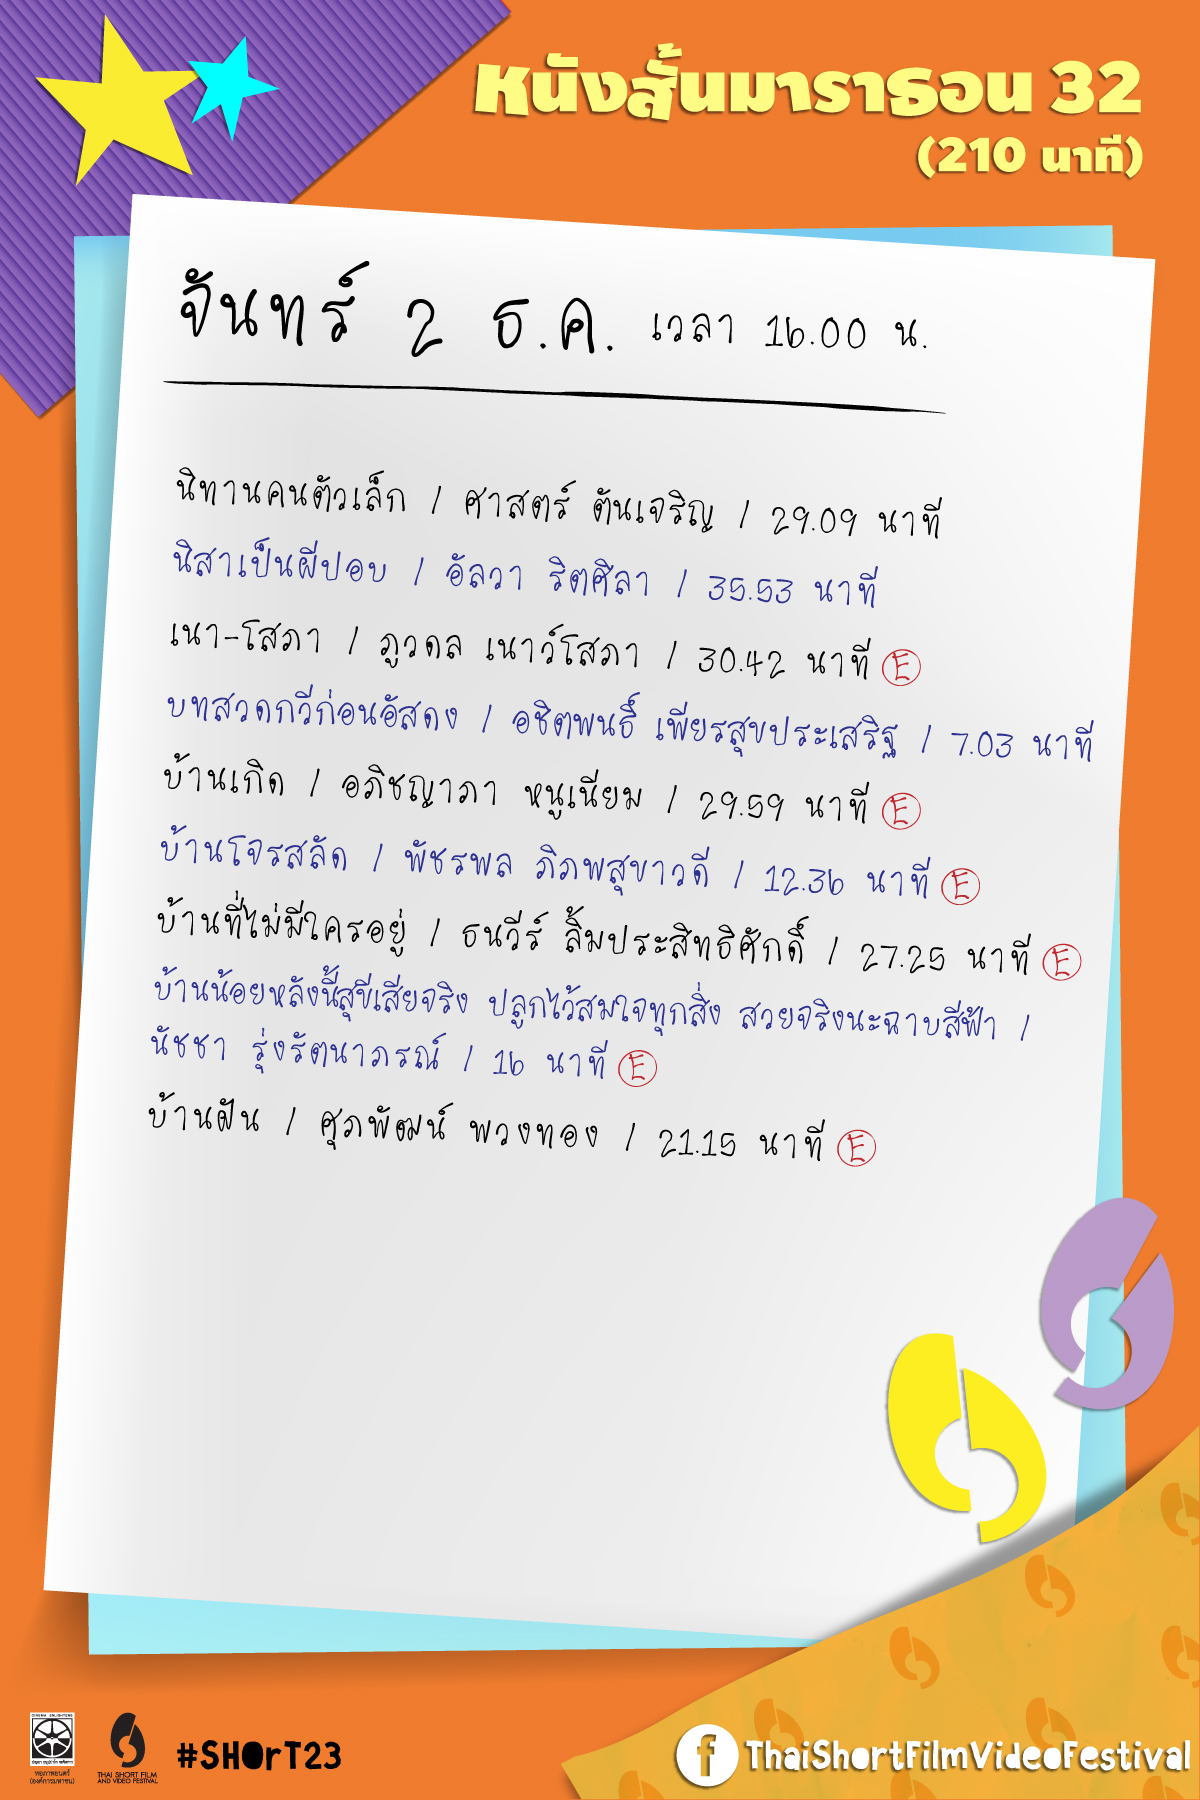 หนังสั้นมาราธอน 32
(210 นาที)
จันทร์ 2 ธ.ค. เวลา 16.00 น.
นิทานคนตัวเล็ก / ศาสตร์ ตันเจริญ / 29.09 นาที
นิสาเป็นผีปอบ / อัลวา ริตศิลา / 35.53 นาที
เนา-โสภา / ภูวดล เนาว์โสภา / 30.42 นาที E
บทสวดกวีก่อนอัสดง / อชิตพนธิ์ เพียรสุขประเสริฐ / 7.03 นาที
บ้านเกิด / อภิชญาภา หนูเนียม / 29.59 นาที E
บ้านโจรสลัด / พัชรพล ภิภพสุขาวดี / 12.36 นาที E
บ้านที่ไม่มีใครอยู่ / ธนวีร์ ลิ้มประสิทธิศักดิ์ / 27.25 นาที E
บ้านน้อยหลังนี้สุขีเสียจริง ปลูกไว้สมใจทุกสิ่ง สวยจริงนะฉาบสีฟ้า /
นัชชา รุ่งรัตนาภรณ์ / 16 นาที E
บ้านฝัน / ศุภพัฒน์ พวงทอง / 21.15 นาที E
CINEMA ENLIGHTENS
หอภาพยนตร์
(องค์การมหาชน)
THAI SHORT FILM
AND VIDEO FESTIVAL
#SHOrT23
f ThaiShortFilmVideoFestival